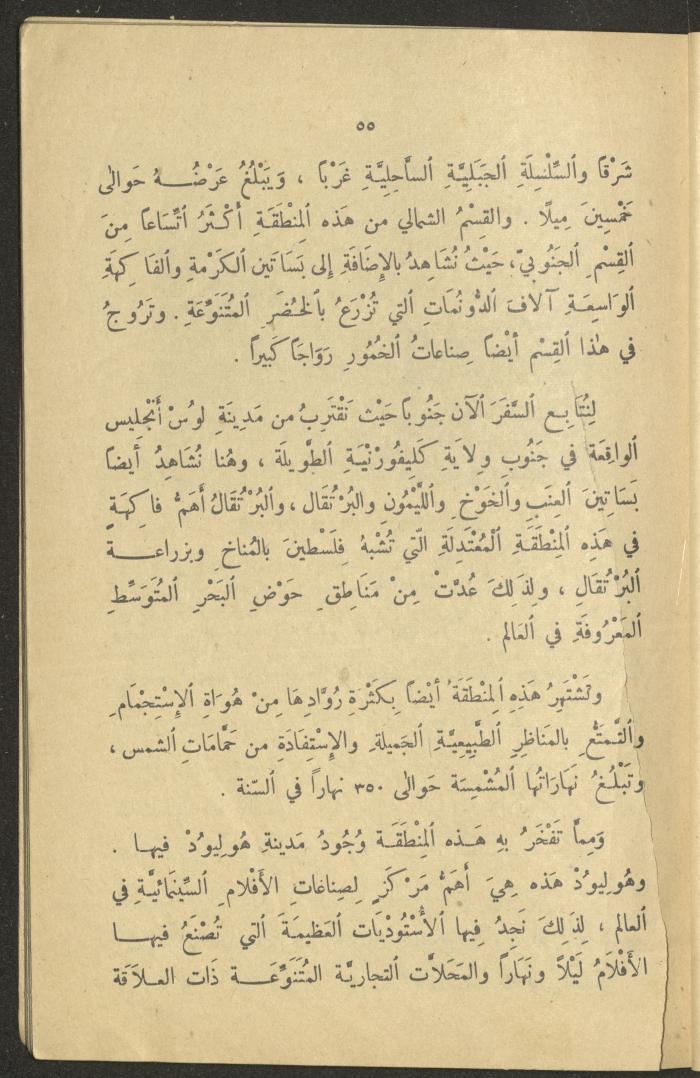 ٥٥
شَرْقًا وٱلسِّلْسِلَةِ ٱلجَبَلِيَّةِ ٱلسَّاحِلِيَّةِ غَرْبًا ، وَيَبْلُغُ عَرْضُـهُ حَوالٰى
خَمْسِينَ مِيلًا . والقِسْمُ الشمالي من هَذه ٱلمِنْطَقَةِ أَكْثَرُ ٱتِّسَاعًا مِنَ
ٱلقِسْمِ ٱلجَنُوبِيِّ، حَيْثُ نُشَاهِدُ بالإضَافَةِ إلى بَسَاتينِ ٱلكَرْمةِ وٱلفَاكِهَةِ
ٱلوَاسِعَـةِ آلافَ ٱلدُّونُمَاتِ ٱلتي تُزْرَعُ بٱلخُضَرِ ٱلمُتَنَوِّعَةِ . وتَرُوجُ
في هٰذا ٱلقِسْمِ أيْضًا صِناعاتُ ٱلخُمُورِ رَوَاجًا كَبيراً .
لِنُتَابِـع ٱلسَّفَرَ ٱلآن جَنُوبًا حَيْث نَقْتَرِبُ من مَدِينَةِ لوُسْ أَنْجِليس
ٱلواقِعَة في جَنُوبِ وِلاَيَةِ كَلِيفُورْنْيَـةِ ٱلطَّويلَة ، وهُنا نُشَاهِدُ أَيضًا
بَسَاتِينَ ٱلعِنَبِ وٱلخَوْخِ وٱللَّيْمُونِ والبُرْتُقَال ، وٱلبُرْتُقَالُ أهَمُّ فاكِهَةٍ
في هَذِه ٱلمِنْطَقَـةِ ٱلْمُعْتَدِلَةِ ٱلّتي تُشْبهُ فِلَسْطينَ بالمُناخِ وبزراعـة
ٱلبُرْتُقَالِ ، ولِذَلِكَ عُدَّتْ مِنْ مَنَاطِقِ حَوْضِ ٱلبَحْرِ ٱلمُتَوَسِّطِ
ٱلمَعْرُوفَةِ في ٱلعَالم .
وتَشْتَهِرُ هَذِهِ ٱلمِنْطَقَةُ أيْضًا بِكَثْرةِ رُوَّادِهَا مِنْ هُوَاةِ ٱلإسْتِجْمَامِ
وٱلتَّمَتُّعِ بالمَناظِرِ ٱلطَّبِيعِيَّـةِ ٱلجَميلةِ وٱلإسْتِفَادَةِ من حَمَّامَاتِ ٱلشمس ،
وتَبْلُـغُ نَهَارَاتُها ٱلمُشْمِسَة حَوالٰى ٣٥٠ نهاراً في ٱلسّنة .
وَمِمَّا تَفْخَرُ بهِ هَـذه ٱلمِنْطَقَـة وُجُودُ مَدينةِ هُوليوُدْ فيهـا .
وهُوليوُدْ هَذه هِيَ أَهَمُّ مَرْكَزٍ لِصِناعَاتِ ٱلأَفْلامِ ٱلسِّينَمَائيَّةِ في
ٱلعالم ، لِذَلِكَ نَجِدُ فِيها ٱلأُسْتُودْيَات ٱلعَظيمَةَ ٱلتي تُصْنَعُ فيهـا
ٱلأَفْلاَمُ لَيْلاً ونَهَارَاً والمَحَلاَّت ٱلتجاريَّة المُتَنَوِّعَـة ذَات العـلاَقة